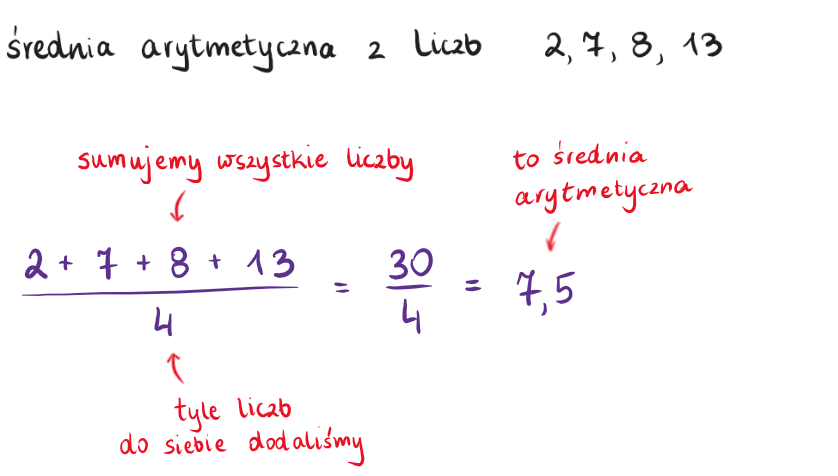 średnia arytmetyczna z liczb 2, 7, 8, 13
sumujemy wszystkie liczby
to średnia
arytmetyczna
2 + 7 + 8 + 13
4
=
30
4
= 7,5
tyle liczb
do siebie dodaliśmy